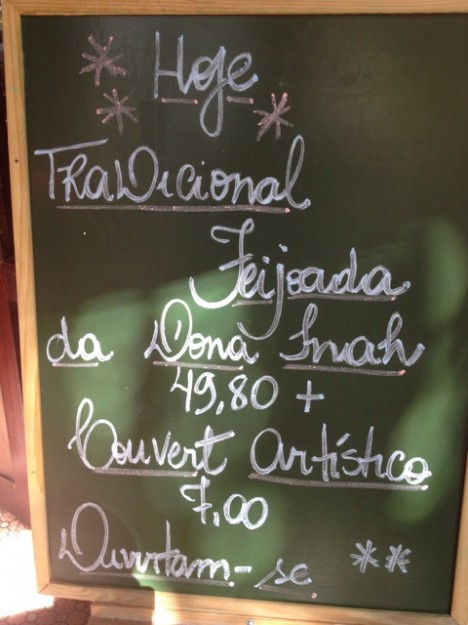 * Hoje *
*
Tradicional
Feijoada
da Dona Inah
49,80 +
Couvert Artístico
7,00
Divirtam-se **